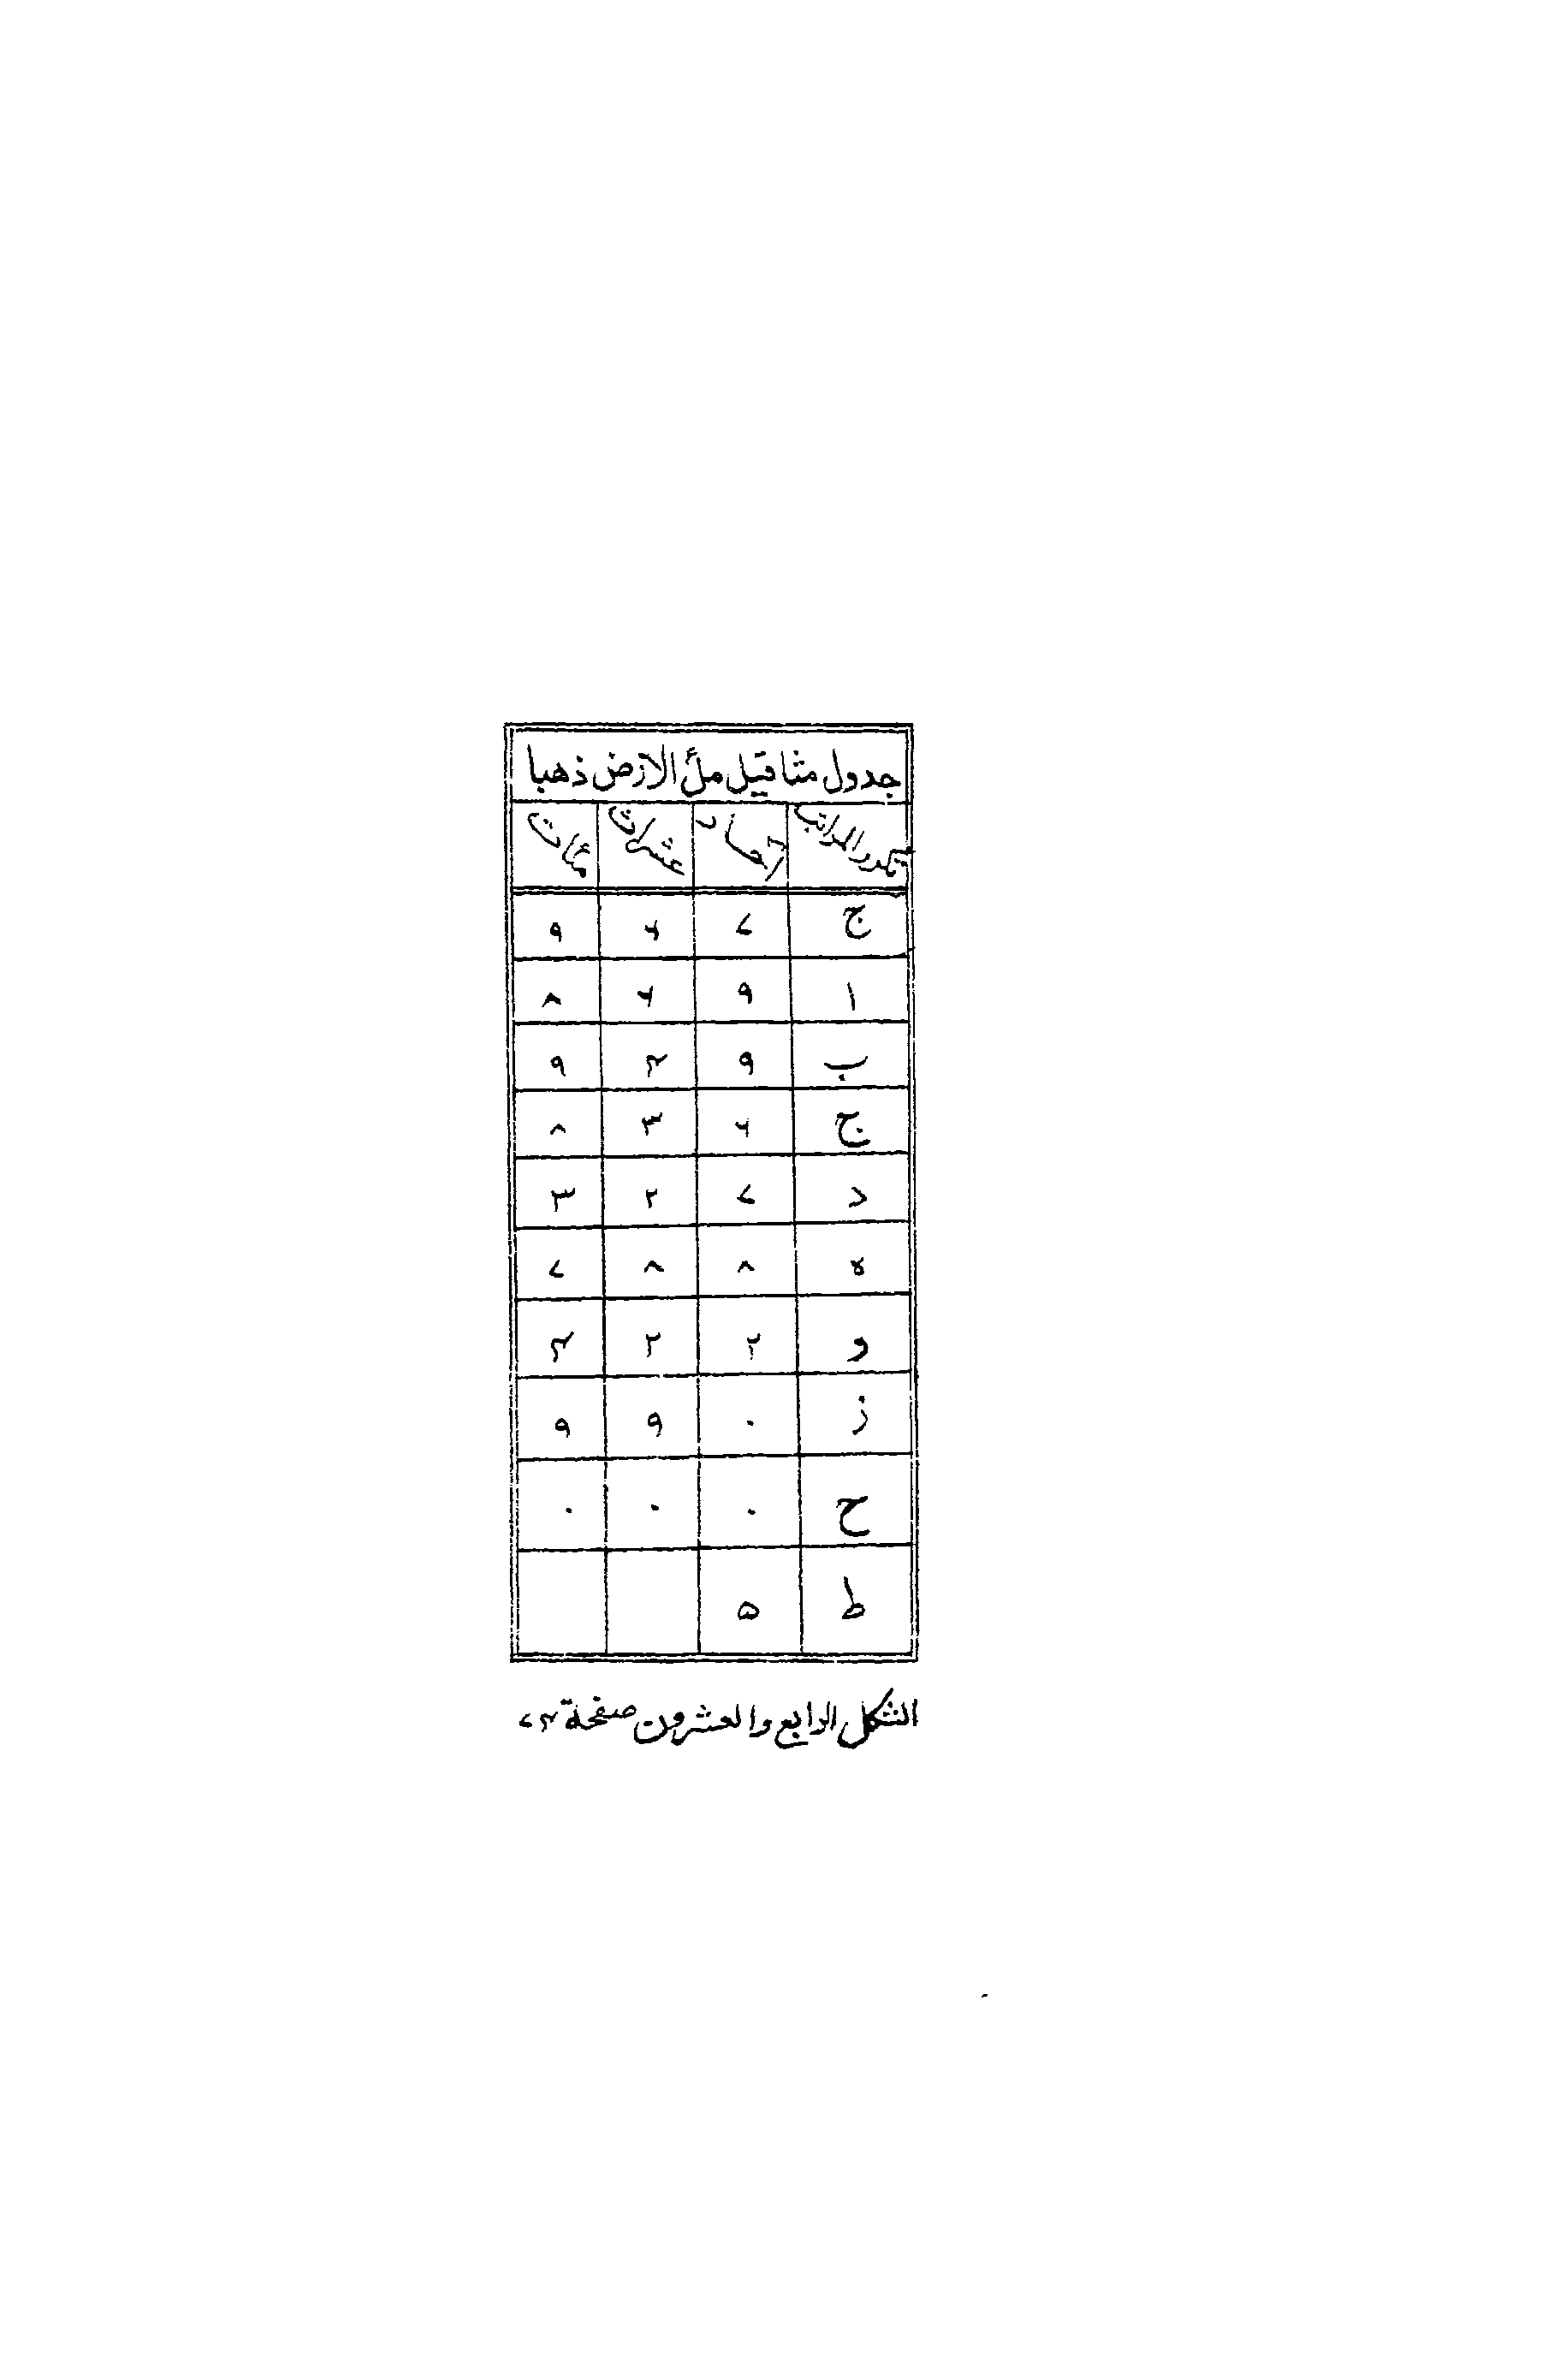 جدول مثاقيل ملأ الارض ذهبا
تكرر المراتب آحاد عشرات مئات
ج ٧ ٦ ٩
ا ٩ ٦ ٨
ب ٩ ٤ ٩
ج ٦ ٣ ٨
د ٧ ٢ ٣
ه ٨ ٨ ٧
و ٢ ٢ ٤
ز ٠ ٩ ٩
ح ٠ ٠ ٠
ط ۵
الشكل الرابع والعشرون صفحة ٧٤